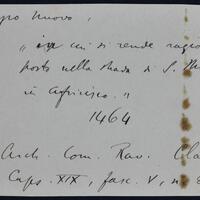 po nuovo,
" in cui si rende ragio
posto nella strada di S. M
in Africisco."
1464
Arch. Com. Rav. Cla
Caps. XIX, fasc. V, n. 8